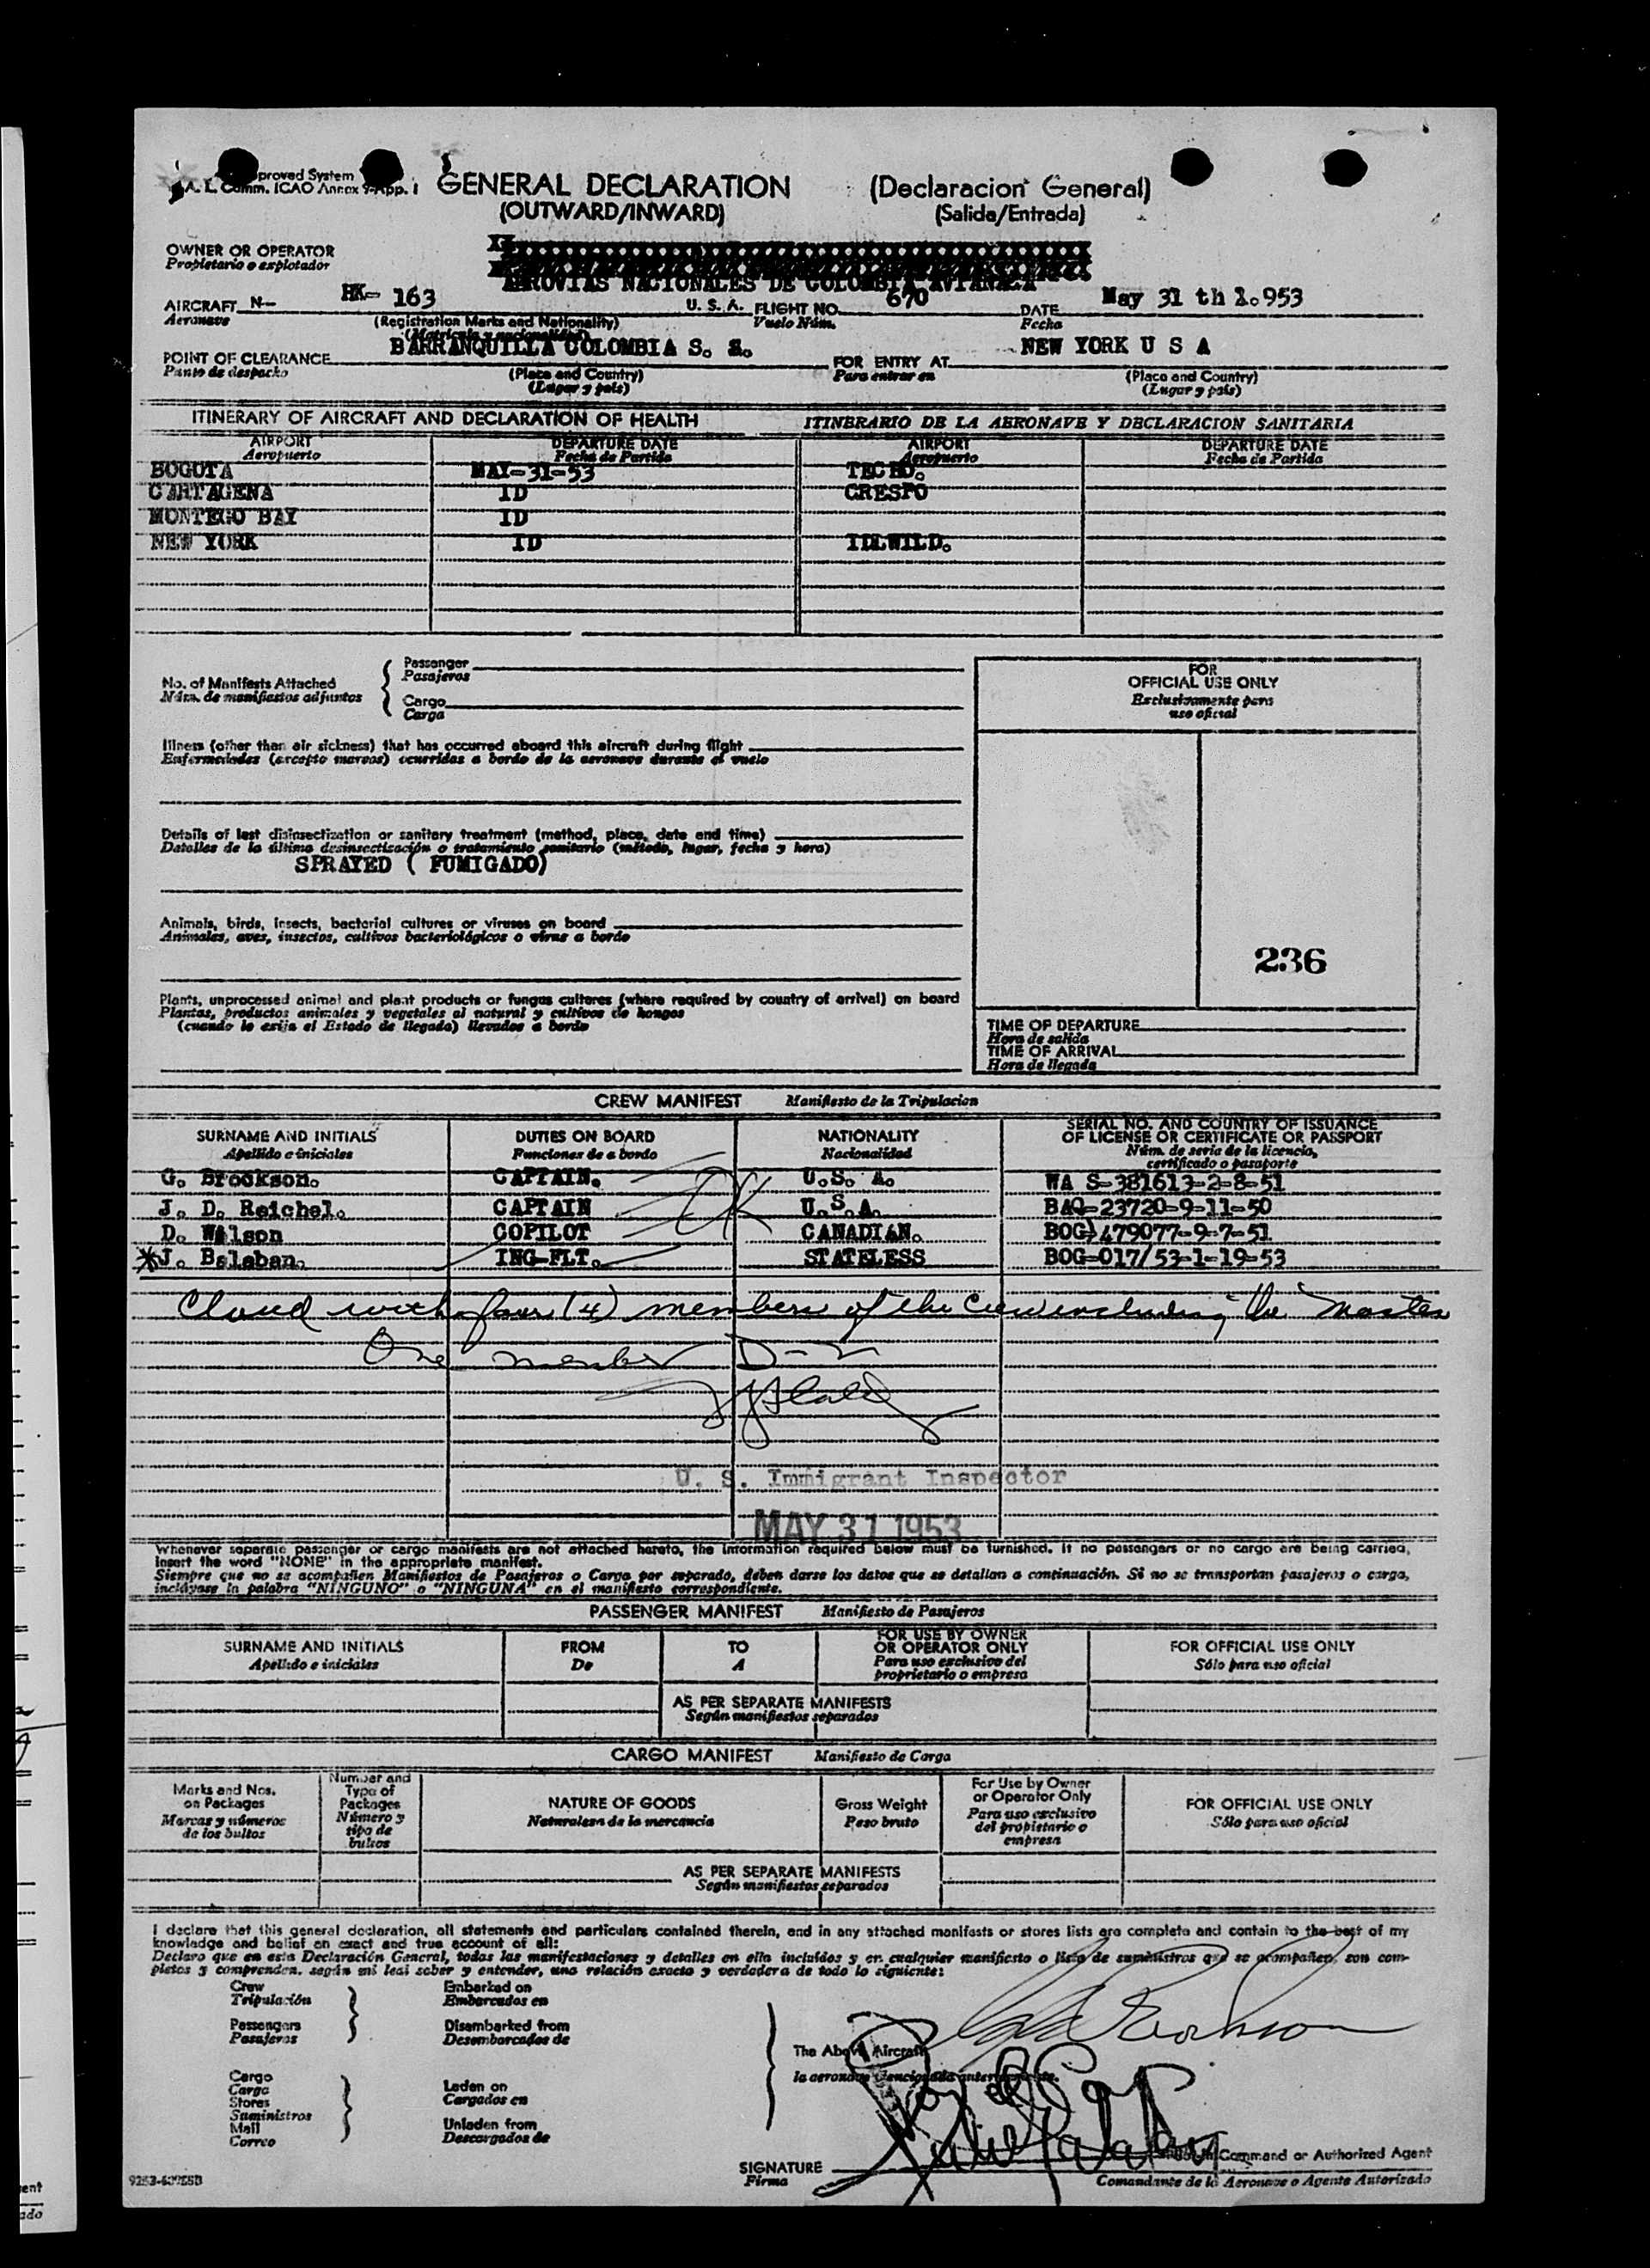 proved System
A. L. Comm. ICAO Annex 9-App. I
GENERAL DECLARATION (Declaracion General)
(OUTWARD/INWARD) (Salida/Entrada)
OWNER OR OPERATOR
Propietario o explotador
AEROVIAS NACIONALES DE COLOMBIA AVIANCA
AIRCRAFT N- HK- 163 U. S. A. FLIGHT NO. 670 DATE May 31 th 1.953
Aeronave (Registration Marks and Nationality) Vuelo Núm. Fecha
(Matrícula y nacionalidad)
POINT OF CLEARANCE BARRANQUILLA COLOMBIA S. A. FOR ENTRY AT NEW YORK U S A
Punto de despacho (Place and Country) Para entrar en (Place and Country)
(Lugar y país) (Lugar y país)
ITINERARY OF AIRCRAFT AND DECLARATION OF HEALTH ITINERARIO DE LA AERONAVE Y DECLARACION SANITARIA
AIRPORT DEPARTURE DATE AIRPORT DEPARTURE DATE
Aeropuerto Fecha de Partida Aeropuerto Fecha de Partida
BOGOTA MAY-31-53 TECHO.
CARTAGENA ID CRESPO
MONTEGO BAY ID
NEW YORK ID IDLWILD.
No. of Manifests Attached
Núm. de manifiestos adjuntos
Passenger
Pasajeros
Cargo
Carga
FOR
OFFICIAL USE ONLY
Exclusivamente para
uso oficial
Illness (other than air sickness) that has occurred aboard this aircraft during flight
Enfermedades (excepto mareos) ocurridas a bordo de la aeronave durante el vuelo
Details of last disinsectization or sanitary treatment (method, place, date and time)
Detalles de la última desinsectización o tratamiento sanitario (método, lugar, fecha y hora)
SPRAYED ( FUMIGADO)
Animals, birds, insects, bacterial cultures or viruses on board
Animales, aves, insectos, cultivos bacteriológicos o virus a bordo
236
Plants, unprocessed animal and plant products or fungus cultures (where required by country of arrival) on board
Plantas, productos animales y vegetales al natural y cultivos de hongos
(cuando lo exija el Estado de llegada) llevados a bordo
TIME OF DEPARTURE
Hora de salida
TIME OF ARRIVAL
Hora de llegada
CREW MANIFEST Manifiesto de la Tripulacion
SURNAME AND INITIALS DUTIES ON BOARD NATIONALITY SERIAL NO. AND COUNTRY OF ISSUANCE OF LICENSE OR CERTIFICATE OR PASSPORT
Apellido e iniciales Funciones de a bordo Nacionalidad Núm. de serie de la licencia, certificado o pasaporte
G. Brockson. CAPTAIN. U.S. A. WA S-381613-2-8-51
J. D. Reichel. CAPTAIN OK U.S.A. BAQ-23720-9-11-50
D. Wilson COPILOT CANADIAN. BOG)479077-9-7-51
*J. Balaban. ING-FLT. STATELESS BOG-017/53-1-19-53
Cleared with four (4) members of the Crew including the Master
One member D-
U. S. Immigrant Inspector
MAY 31 1953
Whenever separate passenger or cargo manifests are not attached hereto, the information required below must be furnished. If no passengers or no cargo are being carried,
insert the word "NONE" in the appropriate manifest.
Siempre que no se acompañen Manifiestos de Pasajeros o Carga por separado, deben darse los datos que se detallan a continuación. Si no se transportan pasajeros o carga,
inclúyase la palabra "NINGUNO" o "NINGUNA" en el manifiesto correspondiente.
PASSENGER MANIFEST Manifiesto de Pasajeros
SURNAME AND INITIALS FROM TO FOR USE BY OWNER OR OPERATOR ONLY FOR OFFICIAL USE ONLY
Apellido e iniciales De A Para uso exclusivo del propietario o empresa Sólo para uso oficial
AS PER SEPARATE MANIFESTS
Según manifiestos separados
CARGO MANIFEST Manifiesto de Carga
Marks and Nos. on Packages Number and Type of Packages NATURE OF GOODS Gross Weight For Use by Owner or Operator Only FOR OFFICIAL USE ONLY
Marcas y números de los bultos Número y tipo de bultos Naturaleza de la mercancía Peso bruto Para uso exclusivo del propietario o empresa Sólo para uso oficial
AS PER SEPARATE MANIFESTS
Según manifiestos separados
I declare that this general declaration, all statements and particulars contained therein, and in any attached manifests or stores lists are complete and contain to the best of my
knowledge and belief an exact and true account of all:
Declaro que en esta Declaración General, todas las manifestaciones y detalles en ella incluídos y en cualquier manifiesto o lista de suministros que se acompañen, son com-
pletos y comprenden, según mi leal saber y entender, una relación exacta y verdadera de todo lo siguiente:
Crew Embarked on
Tripulación Embarcados en
Passengers Disembarked from
Pasajeros Desembarcados de
The Above Aircraft
la aeronave mencionada anteriormente.
Cargo
Carga Laden on
Stores Cargados en
Suministros
Mail Unladen from
Correo Descargados de
SIGNATURE Command or Authorized Agent
Firma Comandante de la Aeronave o Agente Autorizado
ent
ado